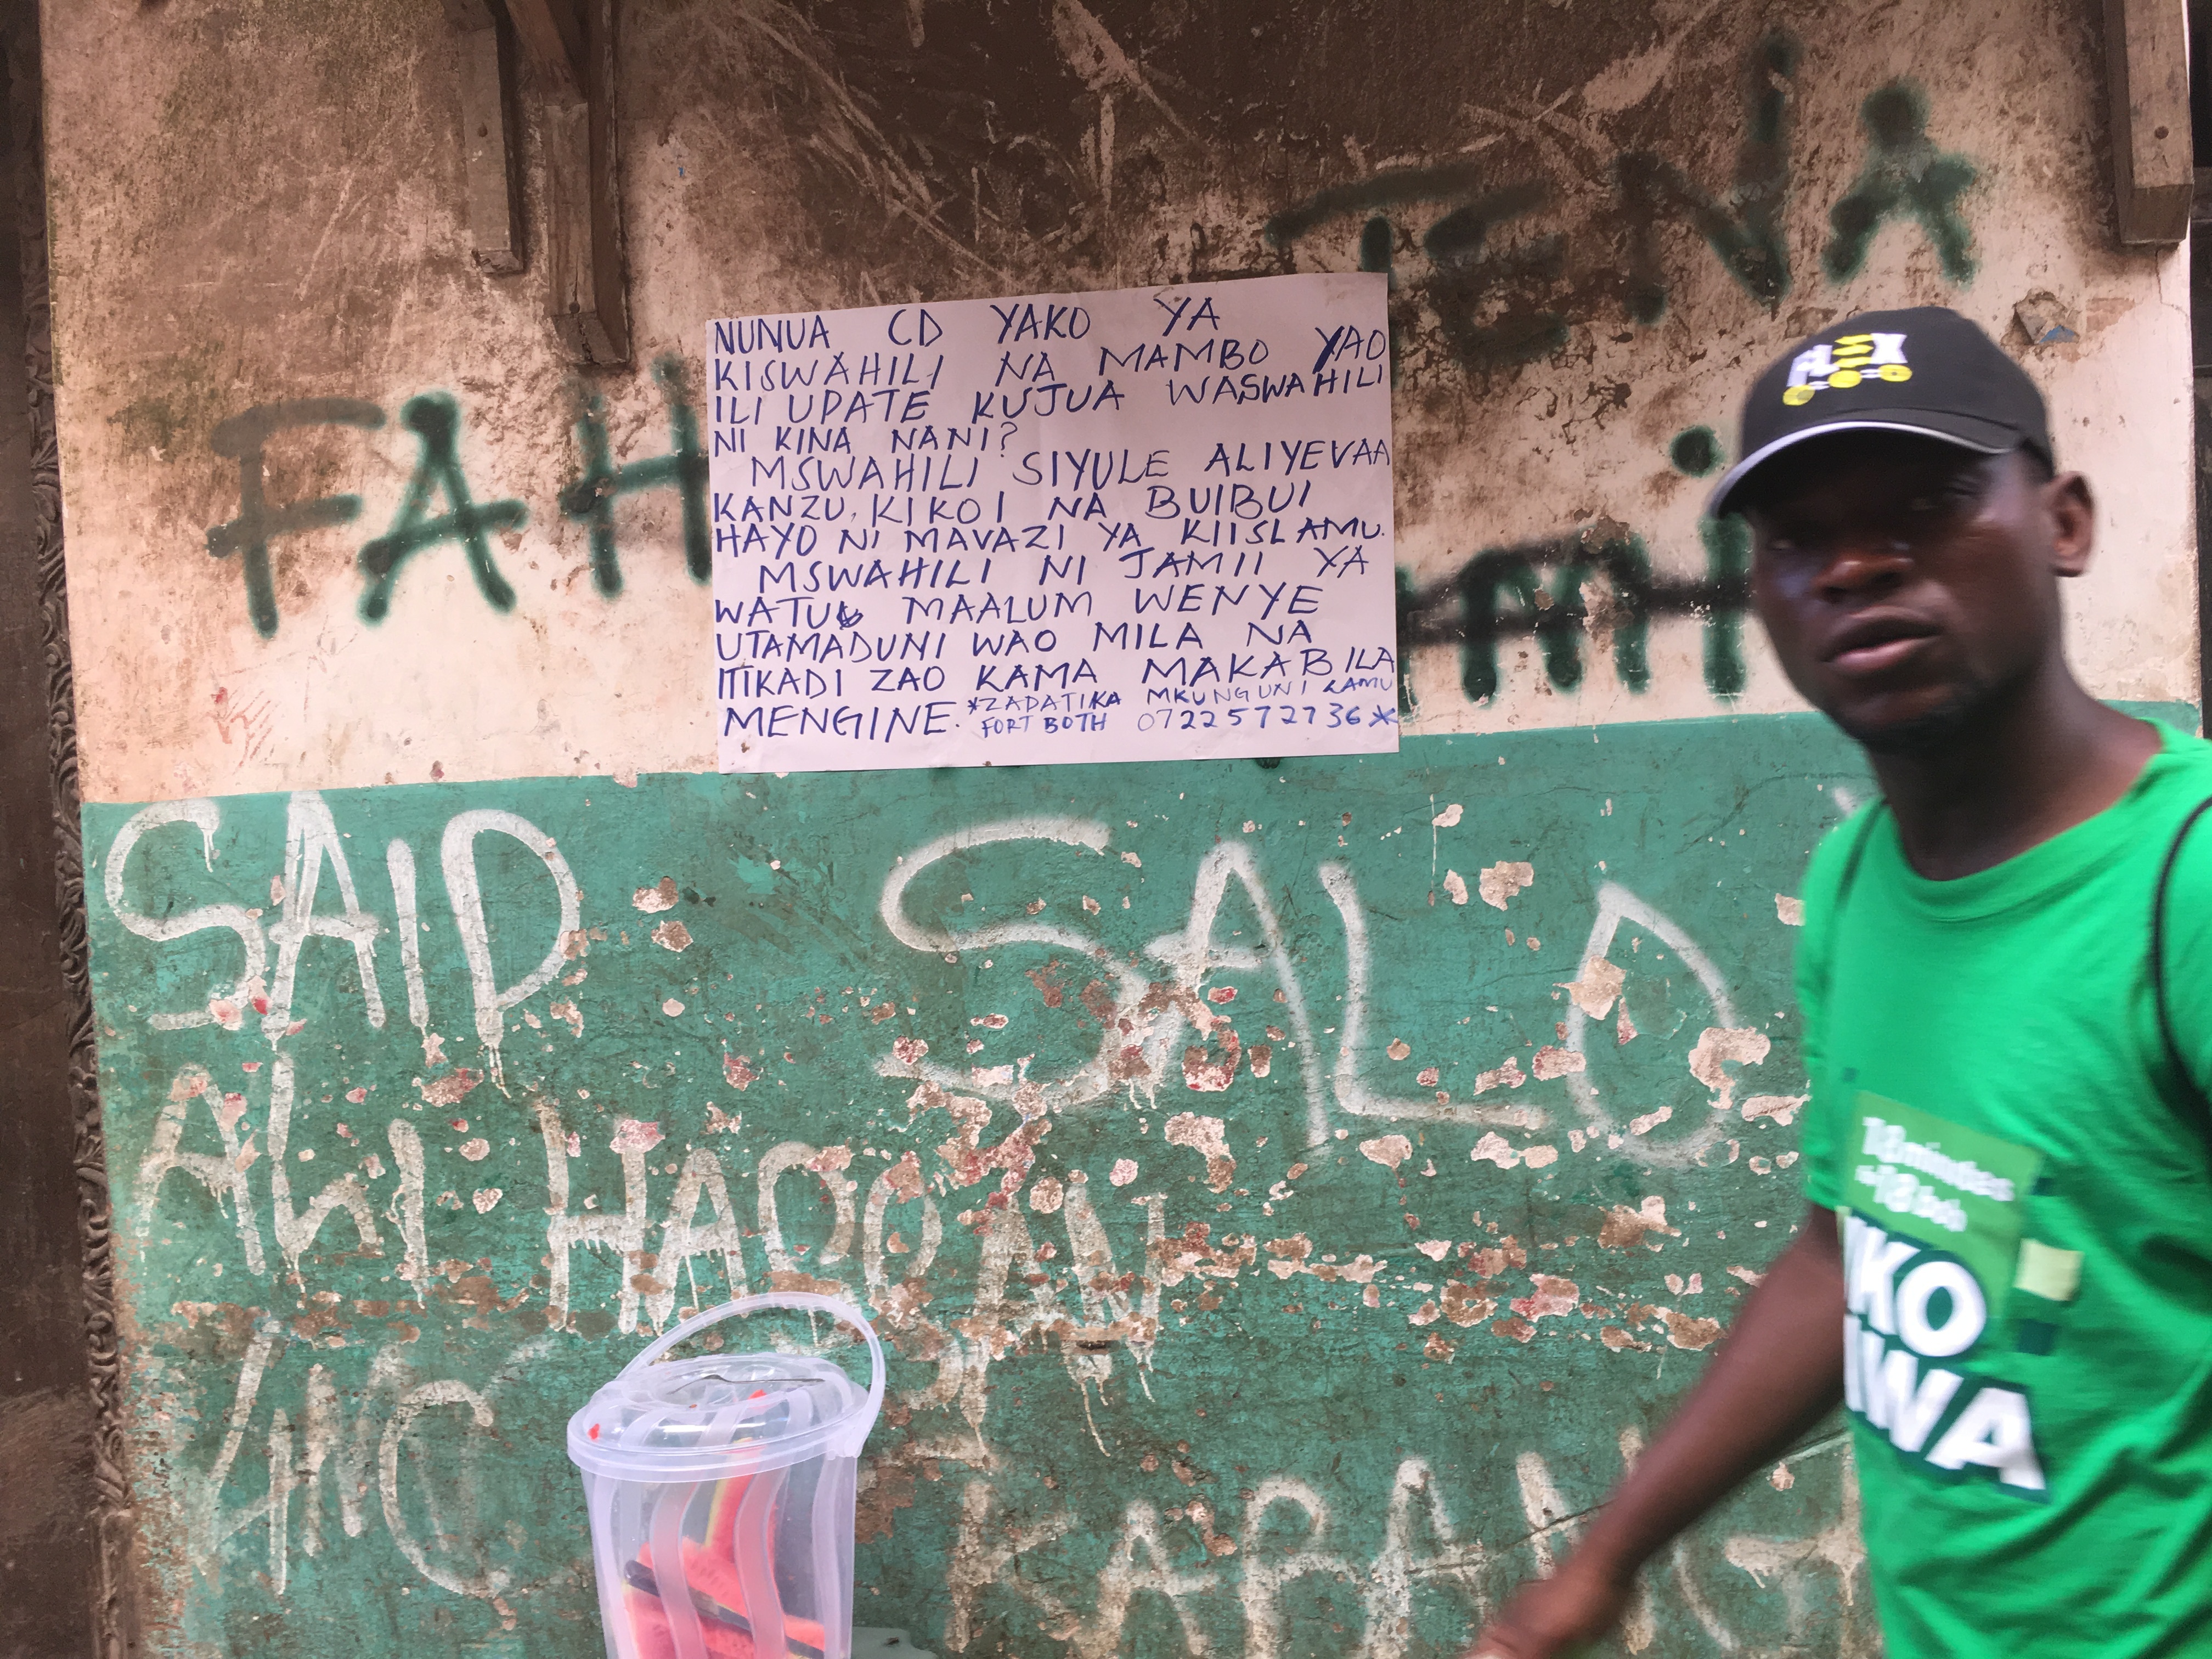 TENA
FAH
NUNUA CD YAKO YA
KISWAHILI NA MAMBO YAO
ILI UPATE KUJUA WASWAHILI
NI KINA NANI?
MSWAHILI SIYULE ALIYEVAA
KANZU, KIKOI NA BUIBUI
HAYO NI MAVAZI YA KIISLAMU.
MSWAHILI NI JAMII YA
WATU MAALUM WENYE
UTAMADUNI WAO MILA NA
ITIKADI ZAO KAMA MAKABILA
MENGINE. *ZADATIKA MKUNGUNI LAMU
FORT BOTH 0722572736*
FLEX
SAID SALO
ALI
KO
IWA